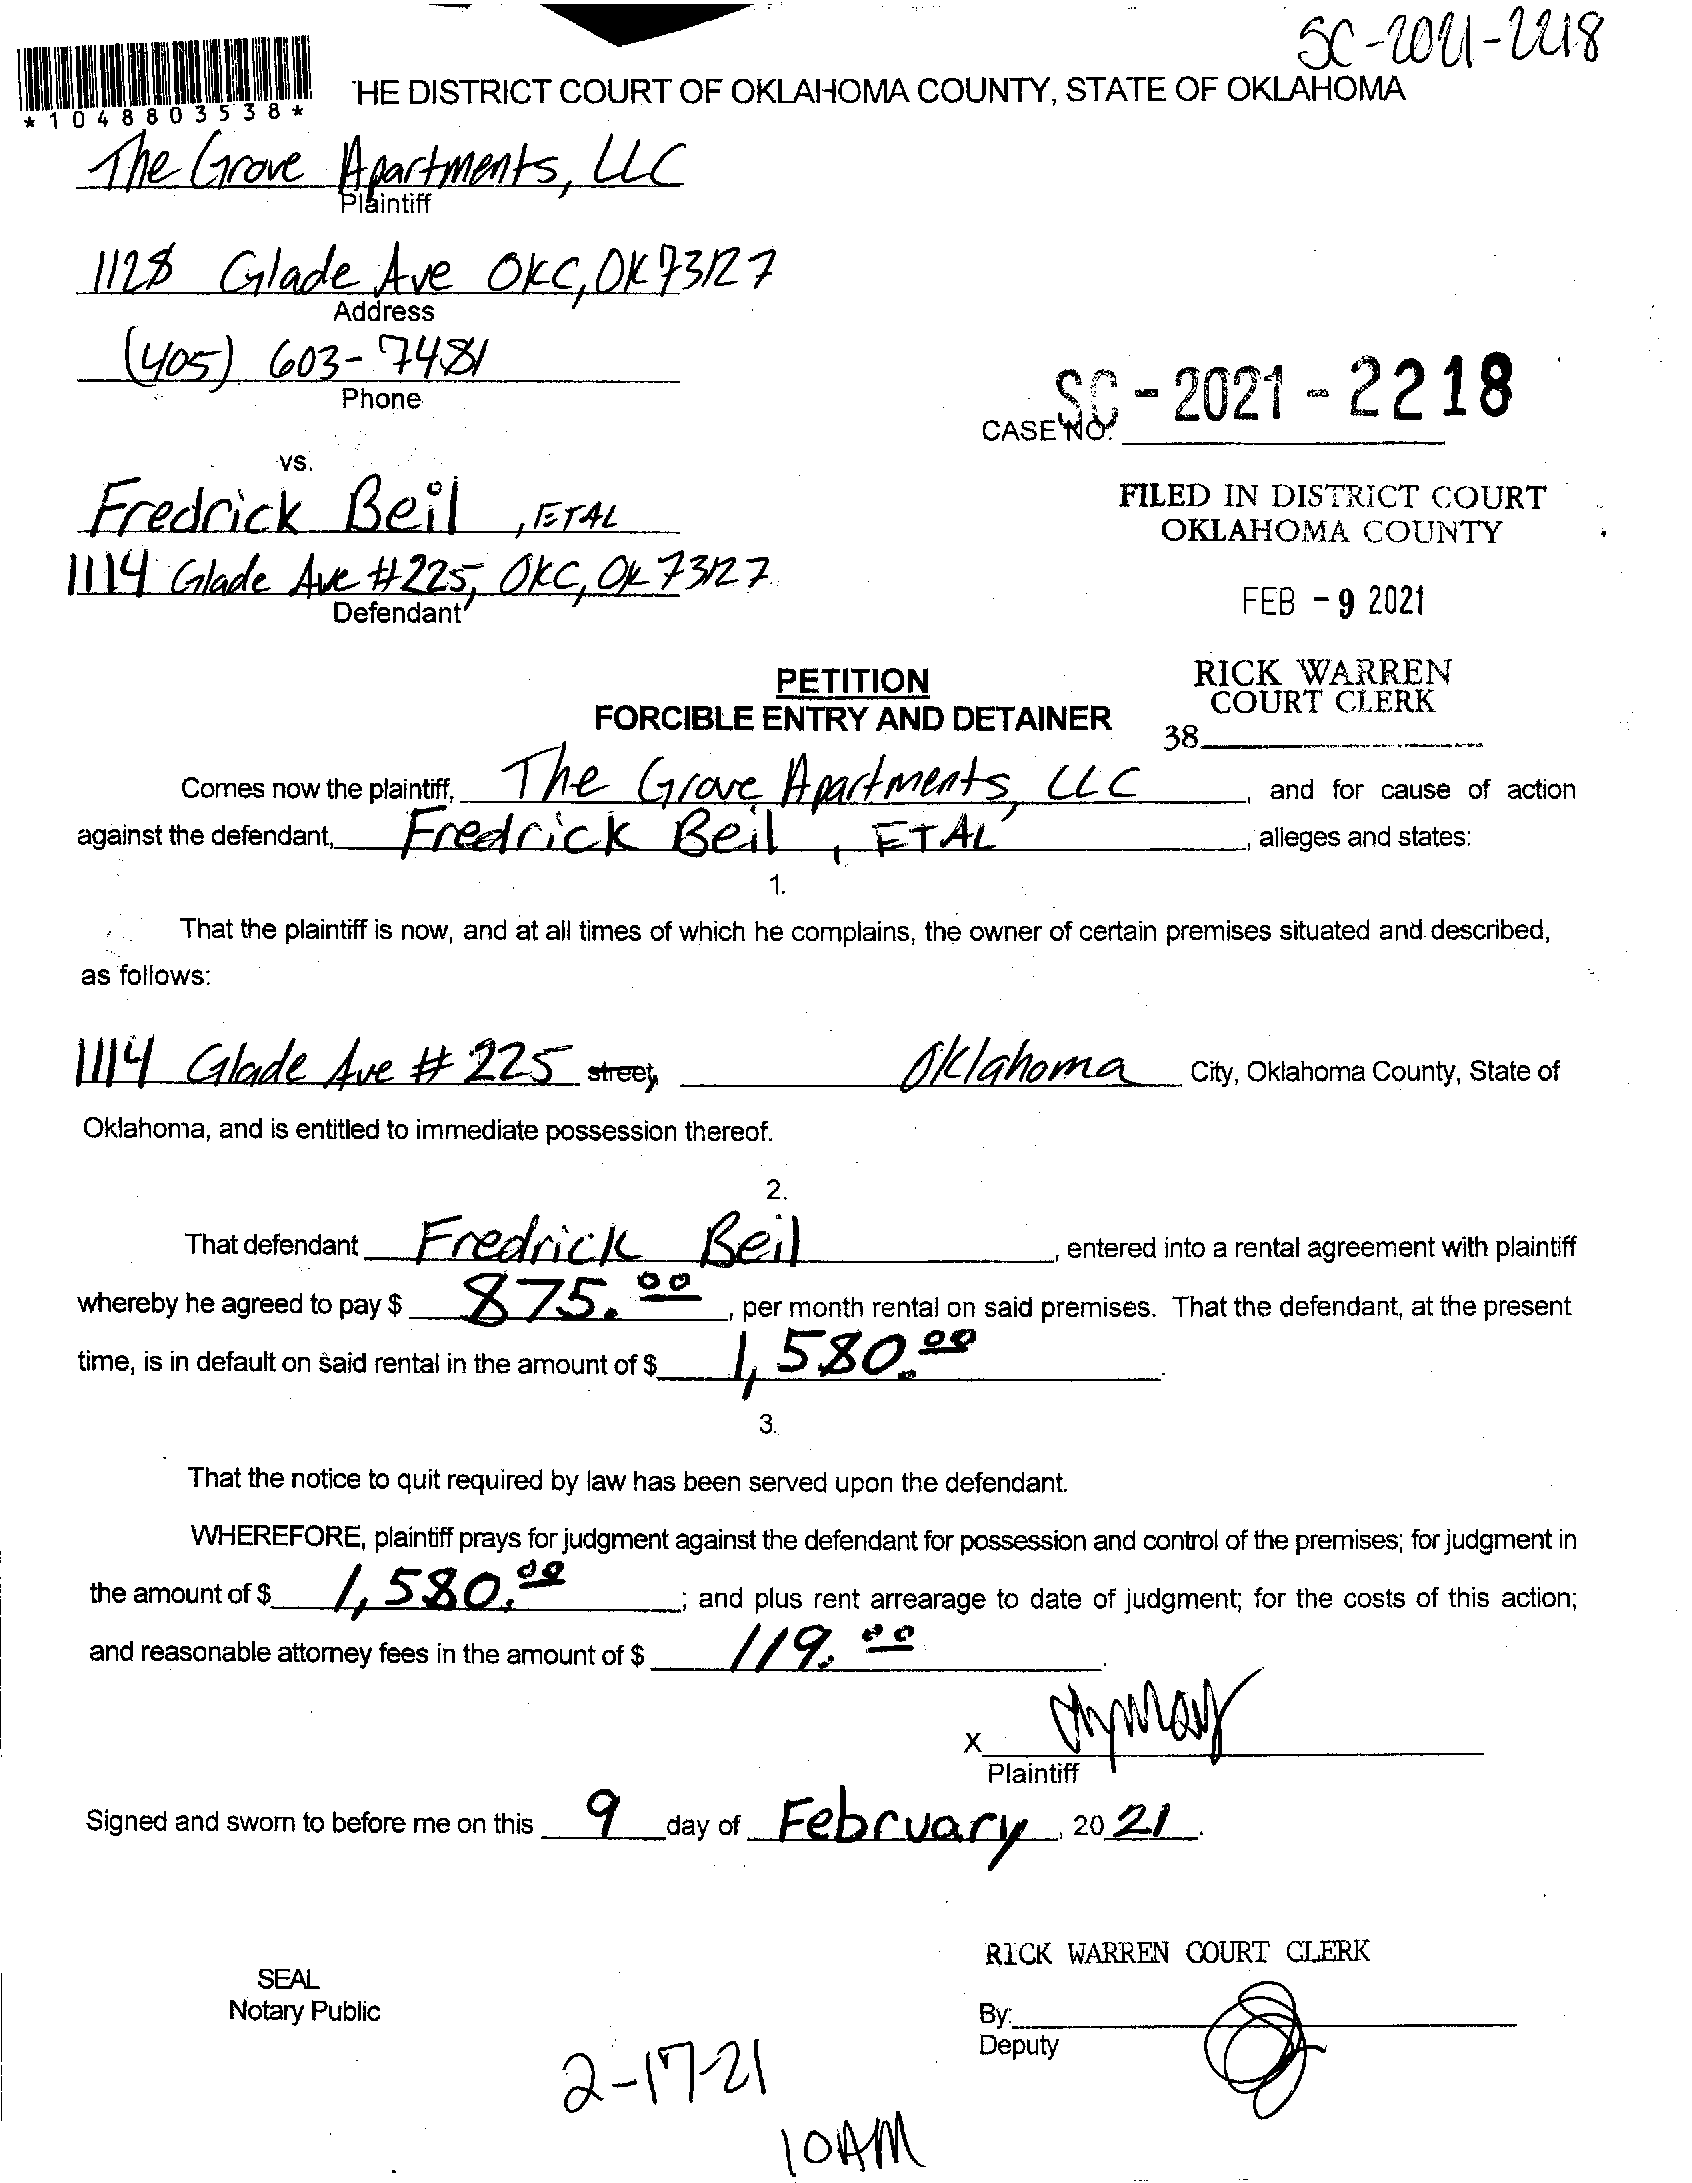 SC-2021-2218
*1048803538*
'HE DISTRICT COURT OF OKLAHOMA COUNTY, STATE OF OKLAHOMA
The Grove Apartments, LLC
Plaintiff
1128 Glade Ave OKC, OK 73127
Address
(405) 603-7481
Phone
SC-2021-2218
CASE NO.
vs.
Fredrick Beil, ETAL
1114 Glade Ave #225, OKC, OK 73127
Defendant
FILED IN DISTRICT COURT
OKLAHOMA COUNTY
FEB -9 2021
RICK WARREN
COURT CLERK
38
PETITION
FORCIBLE ENTRY AND DETAINER
Comes now the plaintiff, The Grove Apartments, LLC, and for cause of action
against the defendant, Fredrick Beil, ETAL, alleges and states:
1.
That the plaintiff is now, and at all times of which he complains, the owner of certain premises situated and described,
as follows:
1114 Glade Ave # 225 street, Oklahoma City, Oklahoma County, State of
Oklahoma, and is entitled to immediate possession thereof.
2.
That defendant Fredrick Beil, entered into a rental agreement with plaintiff
whereby he agreed to pay $ 875.00, per month rental on said premises. That the defendant, at the present
time, is in default on said rental in the amount of $ 1,580.00.
3.
That the notice to quit required by law has been served upon the defendant.
WHEREFORE, plaintiff prays for judgment against the defendant for possession and control of the premises; for judgment in
the amount of $ 1,580.00; and plus rent arrearage to date of judgment; for the costs of this action;
and reasonable attorney fees in the amount of $ 119.00.
X
Plaintiff
Signed and sworn to before me on this 9 day of February, 2021.
RICK WARREN COURT CLERK
SEAL
Notary Public
By:
Deputy
2-17-21
10AM